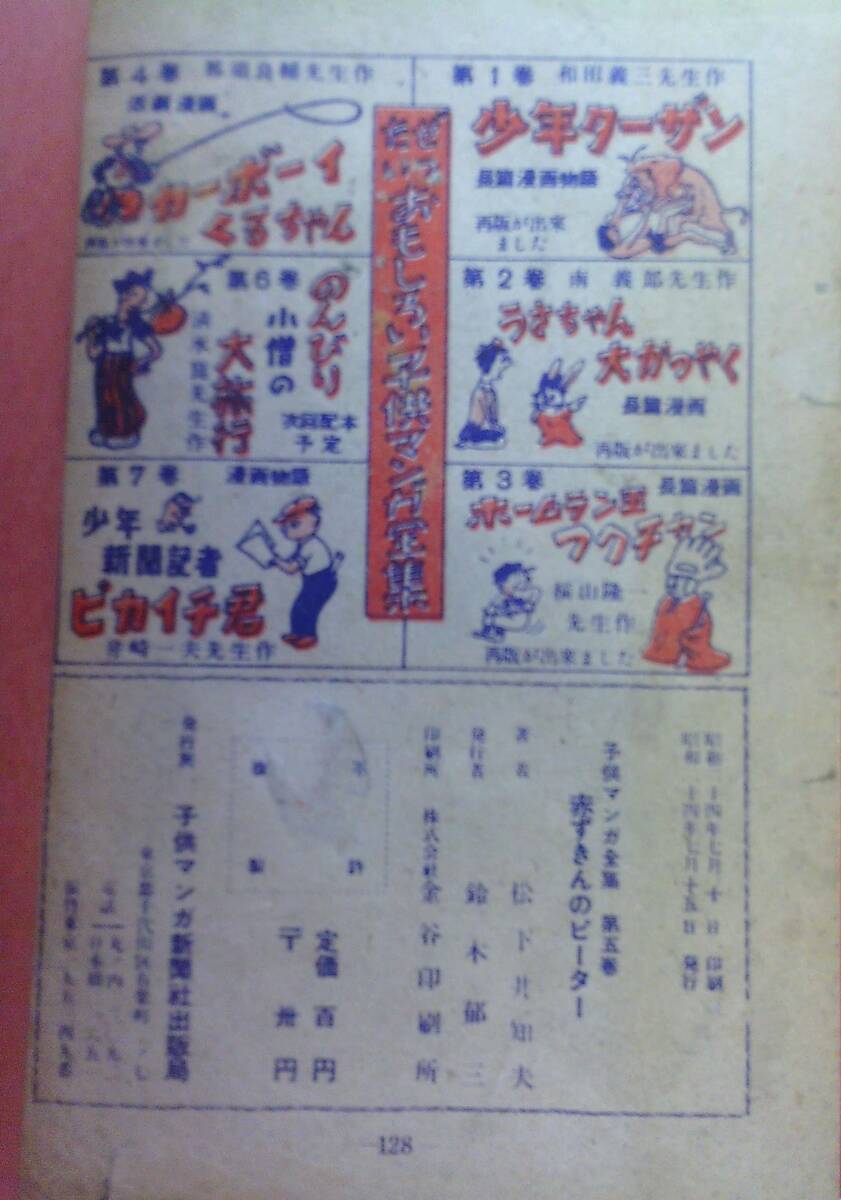 だぜ
いっ
おもしろい子供マンガ全集
第1巻 和田義三先生作
少年ターザン
長篇漫画物語
再版が出来
ました
第2巻 南 義郎先生作
うさちゃん
大かつやく
長篇漫画
再版が出来ました
第3巻 長篇漫画
ホームラン王
フクチャン
横山隆一
先生作
再版が出来ました
第4巻 那須良輔先生作
漫画
カーボーイ
くろちゃん
第6巻
のんびり
小僧の
大旅行
清水崑先生作
次回配本
予定
第7巻 漫画物語
少年
新聞記者
ピカイチ君
井崎一夫先生作
昭和二十四年七月十日 印刷
昭和二十四年七月十五日 発行
子供マンガ全集 第五巻
赤ずきんのピーター
著者 松下井知夫
発行者 鈴木郁三
印刷所 株式会社金谷印刷所
不許
複製
定価百円
〒卅円
発行所 子供マンガ新聞社出版局
東京都千代田区有楽町
電話
振替東京
—128—